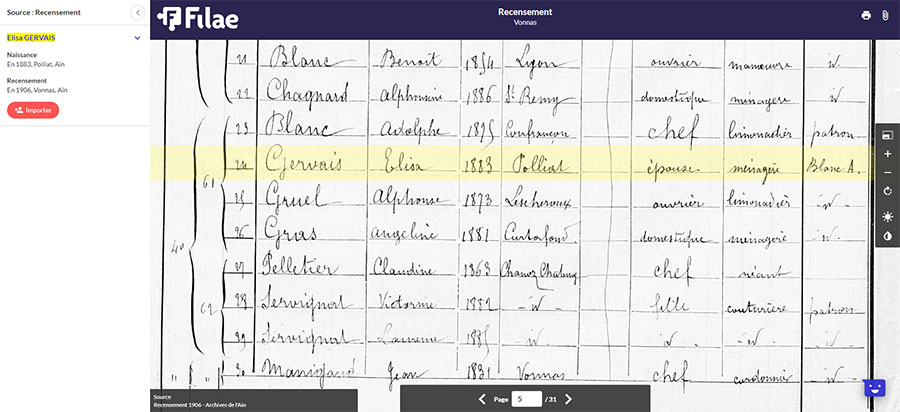 Source : Recensement
Elisa GERVAIS
Naissance
En 1883, Polliat, Ain
Recensement
En 1906, Vonnas, Ain
Importer
Filae
Recensement
Vonnas
21 Blanc Benoit 1854 Lyon ouvrier manœuvre id.
22 Chagnard Alphonsine 1886 St Remy domestique ménagère id
23 Blanc Adolphe 1875 Confrançon chef limonadier patron
24 Gervais Elisa 1883 Polliat épouse ménagère Blanc A.
61
25 Gruel Alphonse 1873 Lescheroux ouvrier limonadier id
26 Gras Angeline 1881 Curtafond domestique ménagère id.
40
27 Pelletier Claudine 1863 chef néant
62
28 Servignat 1882 id fille couturière patron
29 Servignat 1885 id id id id
" " 30 Jean 1831 Vonnas chef cordonnier id
Source
Recensement 1906 - Archives de l'Ain
Page 5 / 31